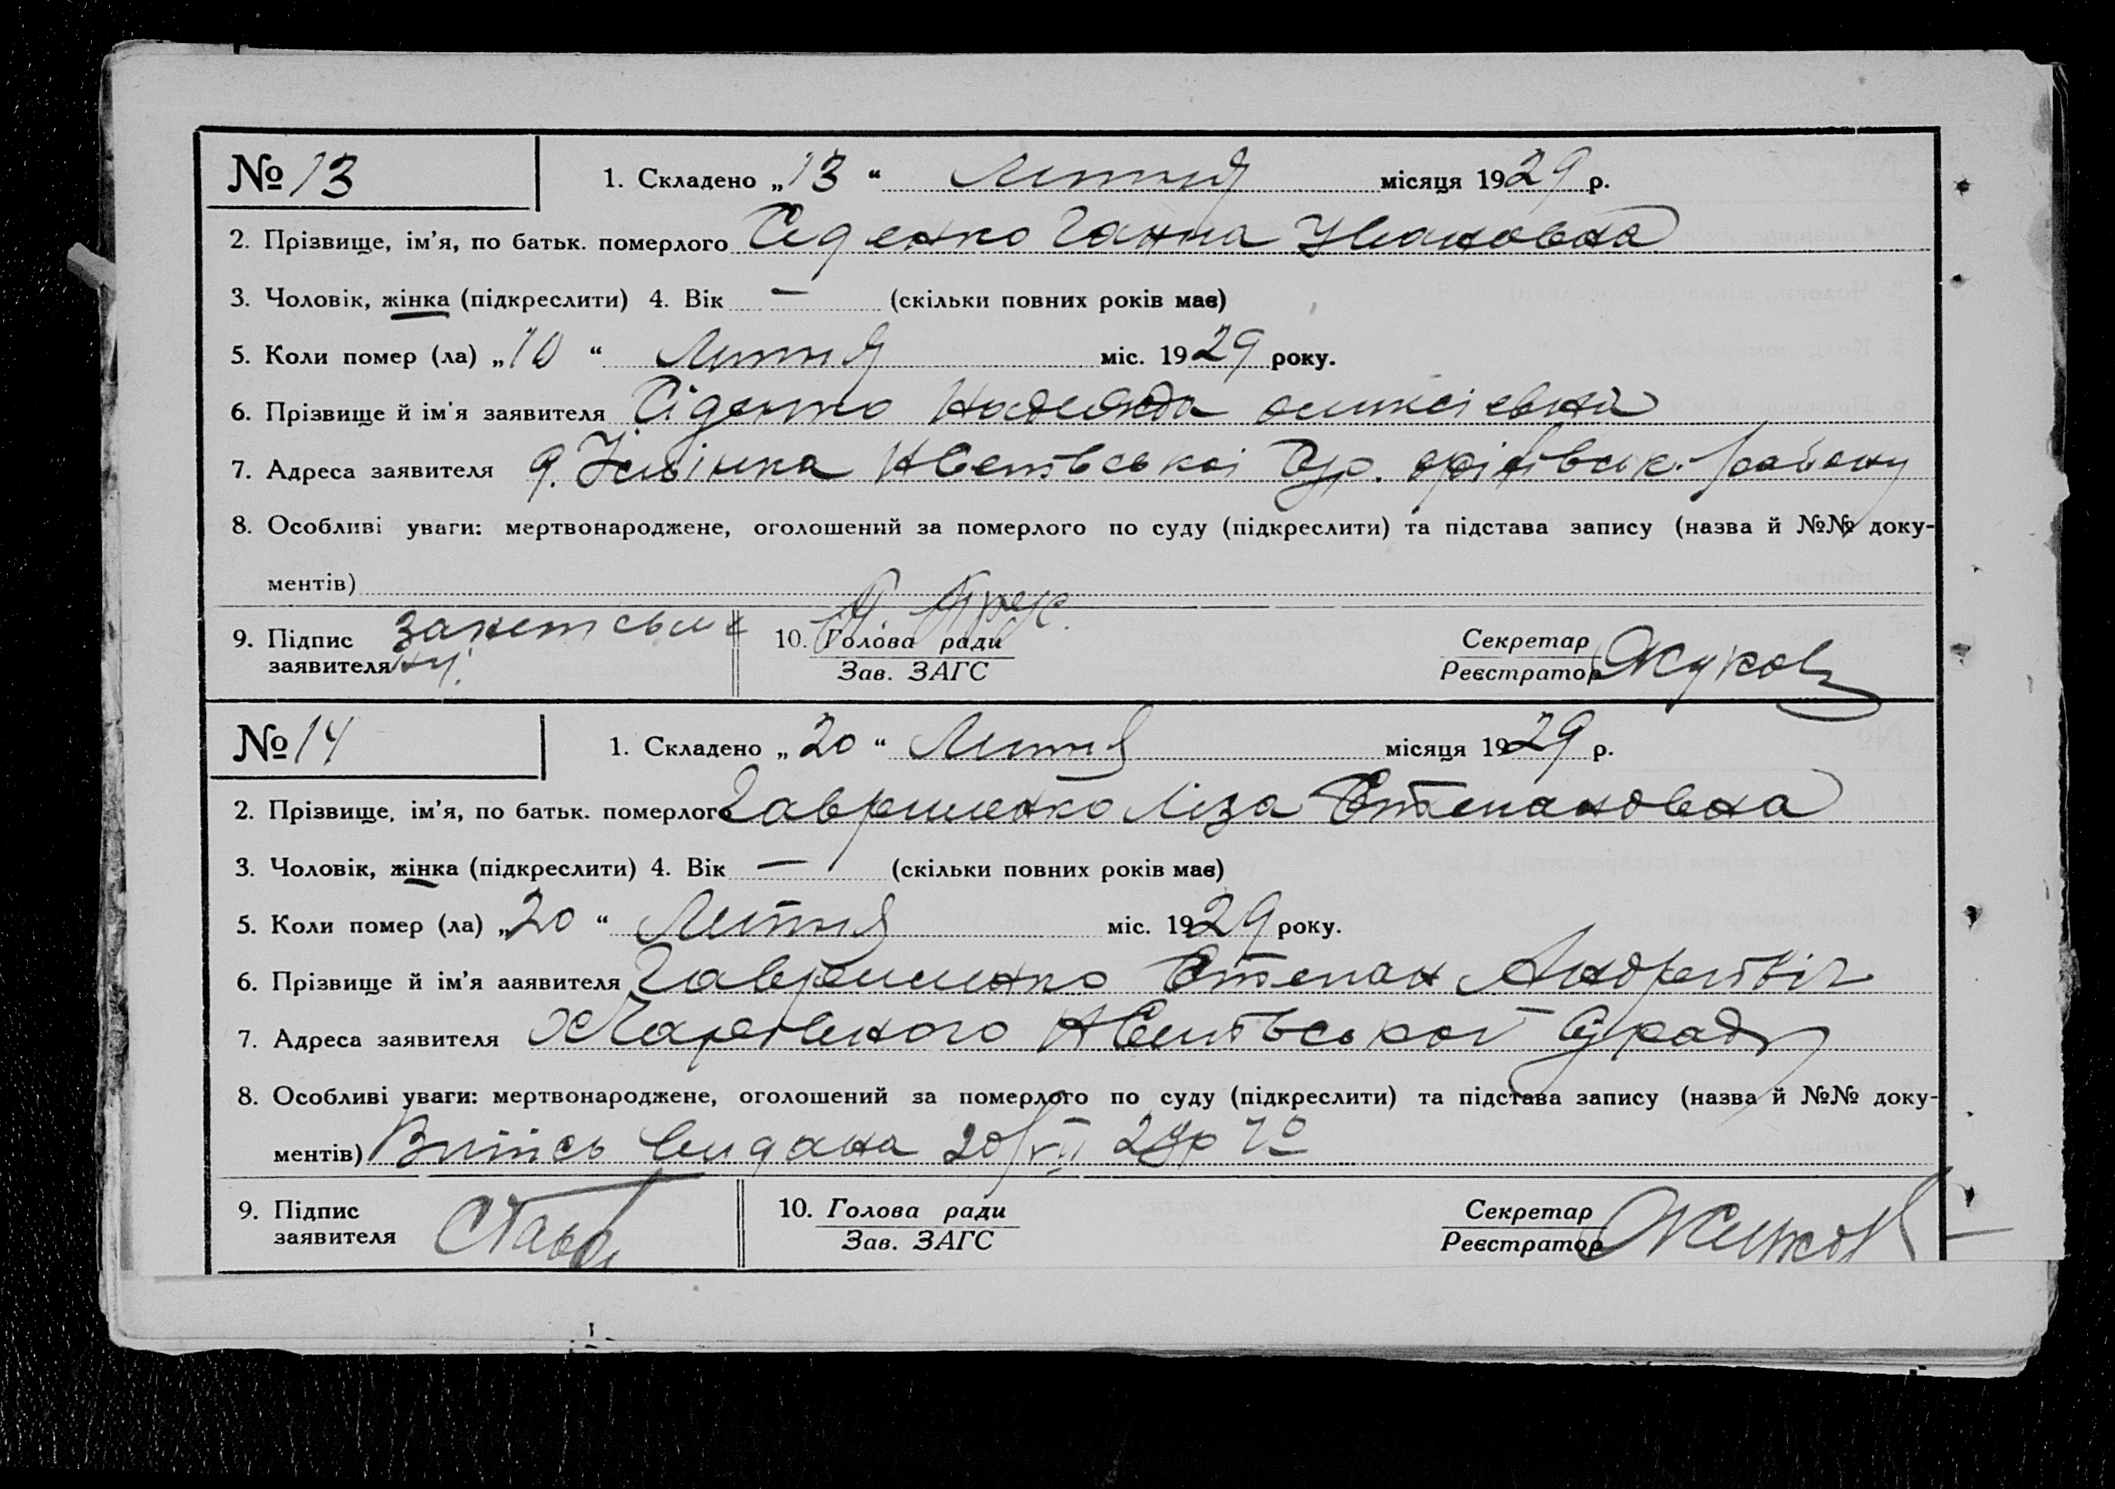 № 13
1. Складено „13“ Липня місяця 1929 р.
2. Прізвище, ім’я, по батьк. померлого Сіденко Ганна Ивановна
3. Чоловік, жінка (підкреслити) 4. Вік — (скільки повних років має)
5. Коли помер (ла) „10“ Липня міс. 1929 року.
6. Прізвище й ім’я заявителя Сіденко Надежда
7. Адреса заявителя району
8. Особливі уваги: мертвонароджене, оголошений за померлого по суду (підкреслити) та підстава запису (назва й №№ доку-
ментів)
9. Підпис заявителя
10. Голова ради
Зав. ЗАГС
Секретар
Реєстратор Жуков
№ 14
1. Складено „20“ Липня місяця 1929 р.
2. Прізвище, ім’я, по батьк. померлого Гавриленко Ліза Степановна
3. Чоловік, жінка (підкреслити) 4. Вік — (скільки повних років має)
5. Коли помер (ла) „20“ Липня міс. 1929 року.
6. Прізвище й ім’я заявителя Гавриленко Степан Андреевіч
7. Адреса заявителя
8. Особливі уваги: мертвонароджене, оголошений за померлого по суду (підкреслити) та підстава запису (назва й №№ доку-
ментів) Витись видана 20/VII 29р
9. Підпис
заявителя
10. Голова ради
Зав. ЗАГС
Секретар
Реєстратор Жуков